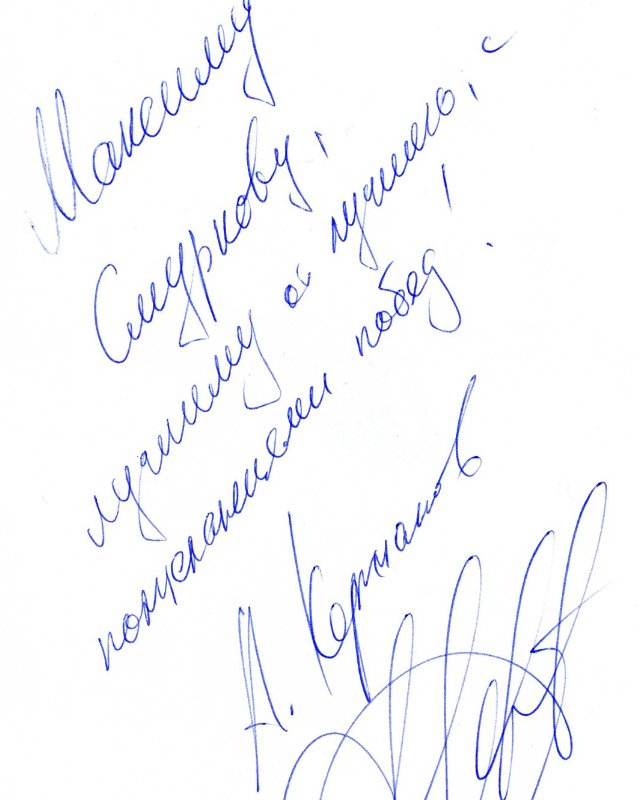 Максиму
Смуркову,
лучшему от лучшего, с
пожеланиями побед!
А. Кержаков